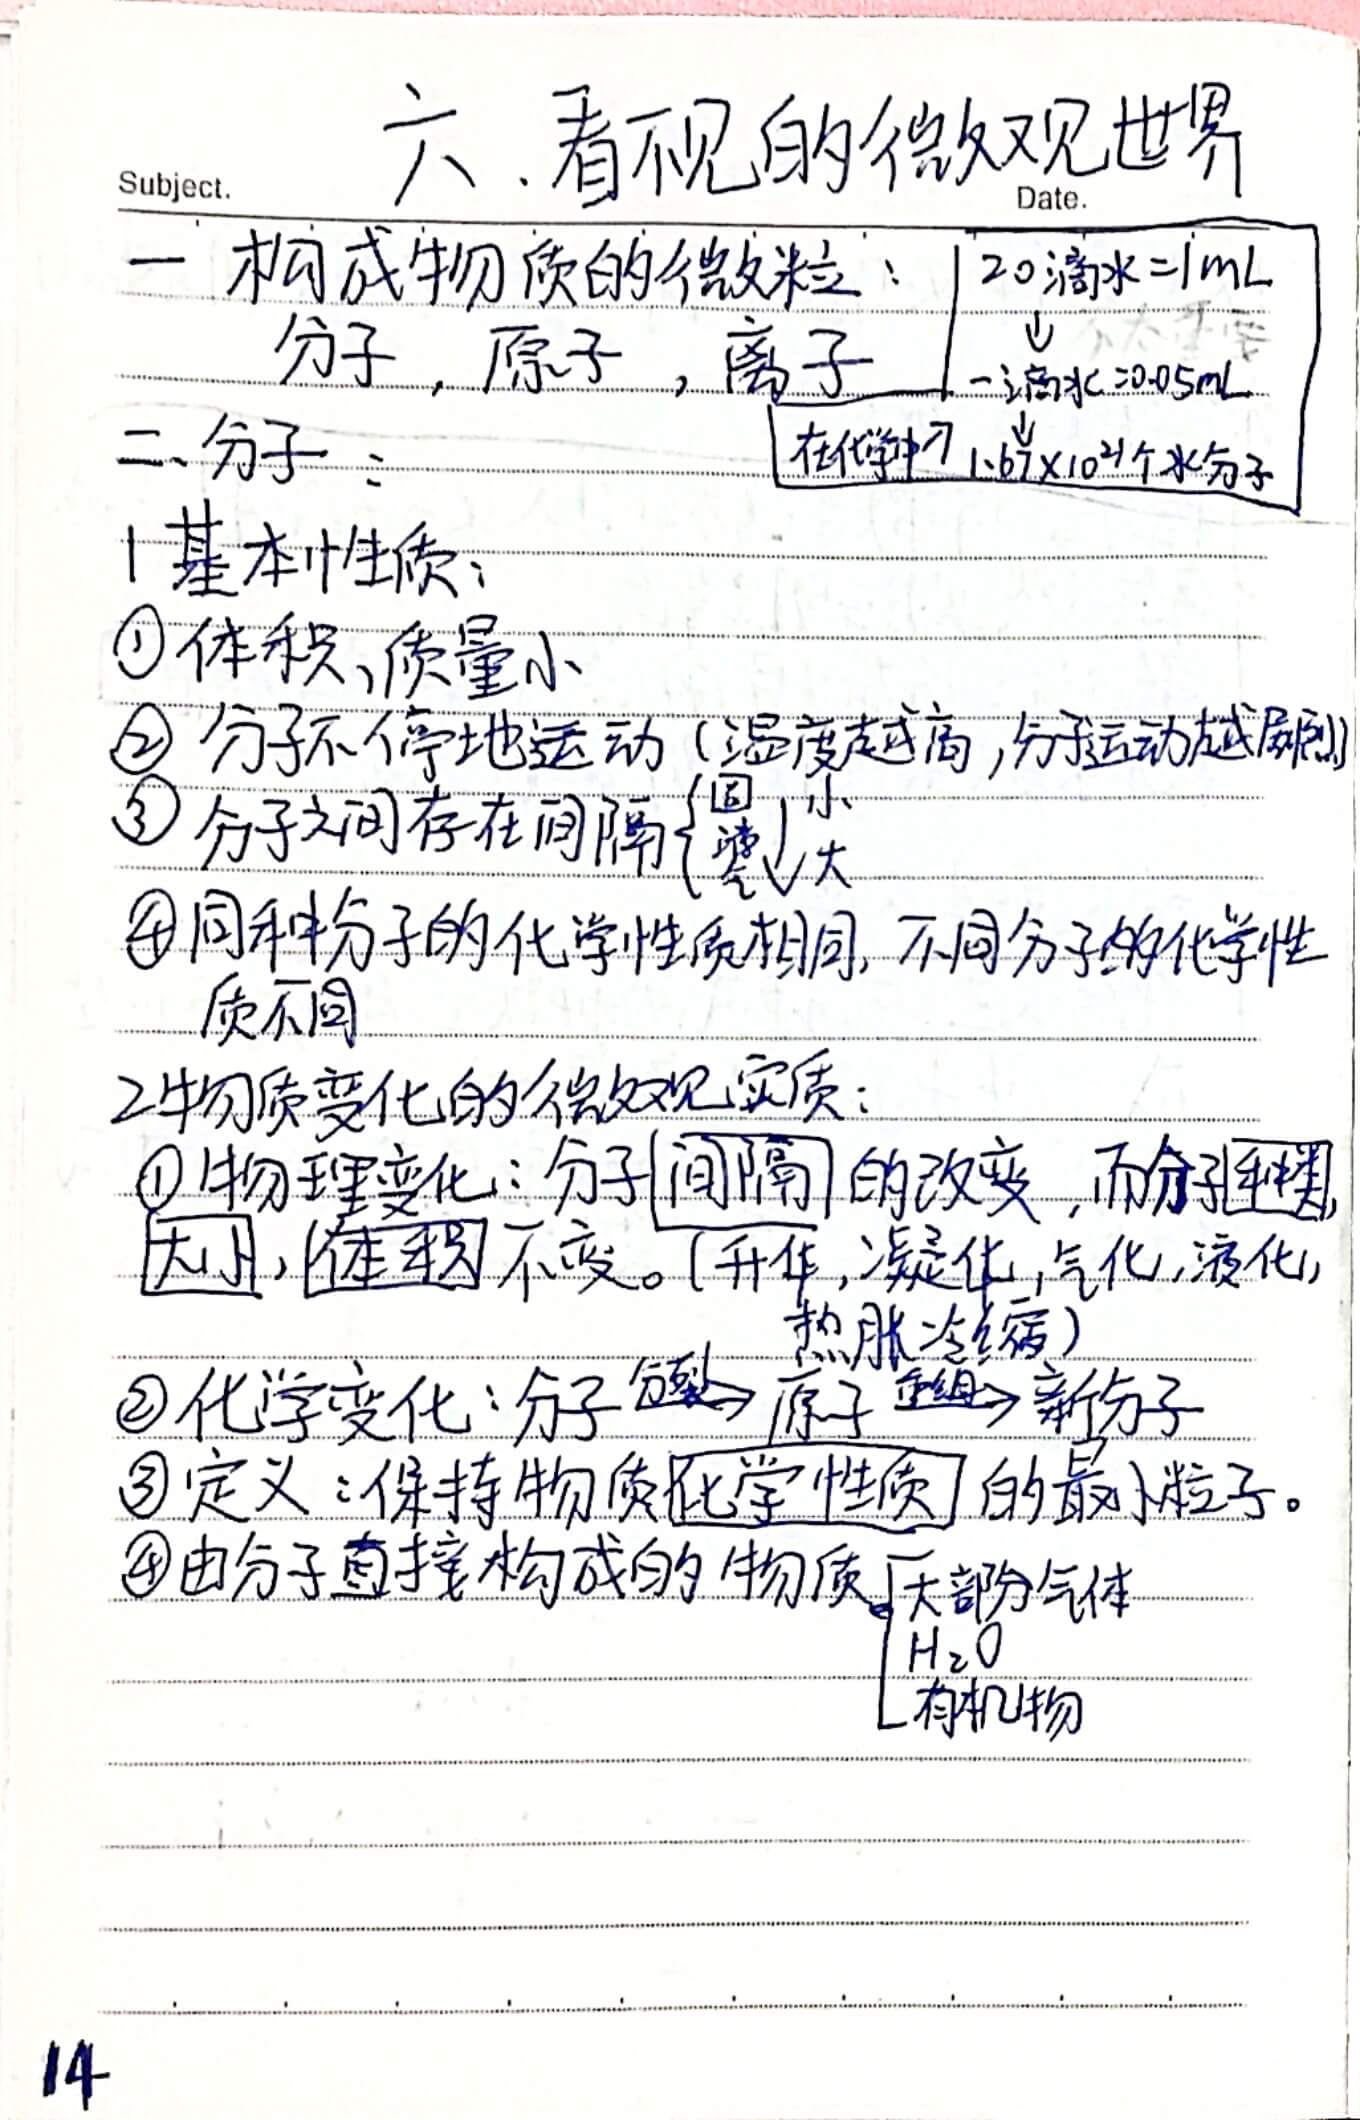 六.看不见的微观世界
Subject.
Date.
一 构成物质的微粒:
分子,原子,离子
20滴水=1mL
↓
一滴水=0.05mL
↓
在化学中↗ 1.67×10²¹个水分子
二、分子:
1基本性质:
①体积、质量小
②分子不停地运动(温度越高,分子运动越剧烈)
③分子之间存在间隔{固 液 气 ↓ 小 大
④同种分子的化学性质相同,不同分子的化学性
质不同
2物质变化的微观实质:
①物理变化:分子间隔的改变,而分子种类,
大小,体积不变。(升华,凝华,气化,液化,
热胀冷缩)
②化学变化:分子 分裂→ 原子 重组→ 新分子
③定义:保持物质化学性质的最小粒子。
④由分子直接构成的物质 大部分气体
H₂O
有机物
14